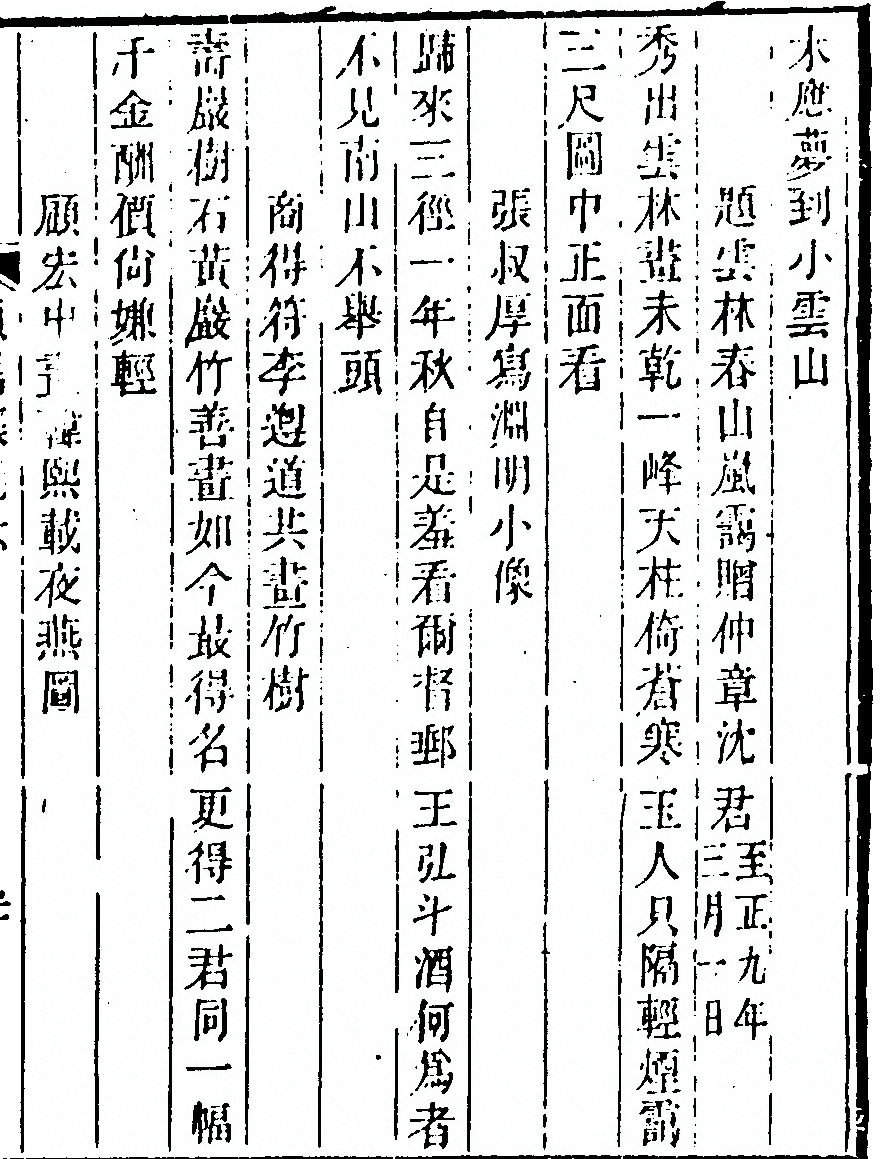 木應夢到小雲山
題雲林春山嵐靄贈仲章沈君至正九年三月一日
秀出雲林畫未乾一峰天柱倚蒼寒玉人只隔輕煙靄
三尺圖中正面看
張叔厚寫淵明小像
歸來三徑一年秋自是羞看爾督郵王弘斗酒何爲者
不見南山不舉頭
商得符李遵道共畫竹樹
壽巖樹石黃巖竹善畫如今最得名更得二君同一幅
千金酬價尚嫌輕
顧宏中畫韓熙載夜燕圖